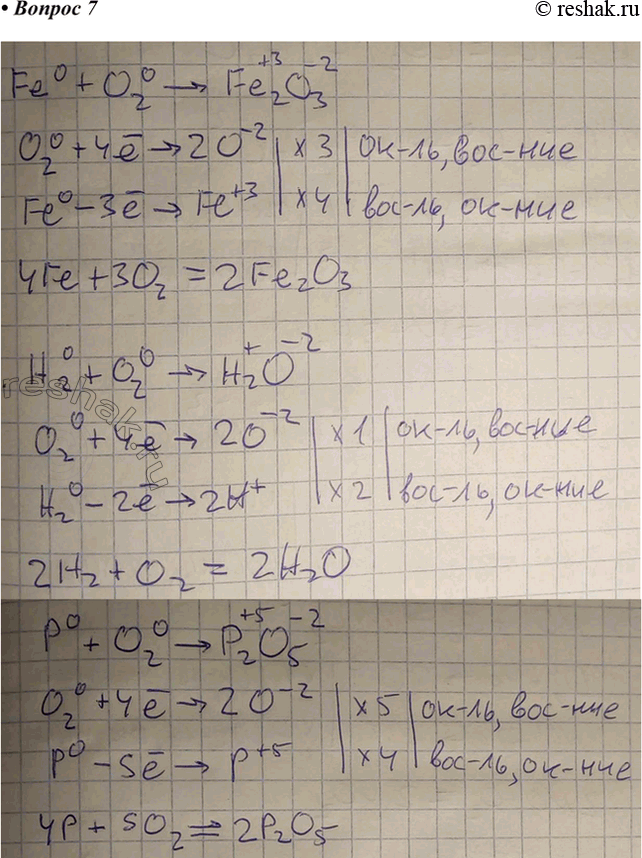 • Вопрос 7 © reshak.ru
Fe⁰ + O₂⁰ → Fe₂⁺³O₃⁻²
O₂⁰ + 4ē → 2O⁻² | x 3 | ок-ль, вос-ние
Fe⁰ - 3ē → Fe⁺³ | x 4 | вос-ль, ок-ние
4Fe + 3O₂ = 2Fe₂O₃
H₂⁰ + O₂⁰ → H₂⁺O⁻²
reshak.ru
O₂⁰ + 4ē → 2O⁻² | x 1 | ок-ль, вос-ние
H₂⁰ - 2ē → 2H⁺ | x 2 | вос-ль, ок-ние
2H₂ + O₂ = 2H₂O
P⁰ + O₂⁰ → P₂⁺⁵O₅⁻²
O₂⁰ + 4ē → 2O⁻² | x 5 | ок-ль, вос-ние
P⁰ - 5ē → P⁺⁵ | x 4 | вос-ль, ок-ние
4P + 5O₂ = 2P₂O₅